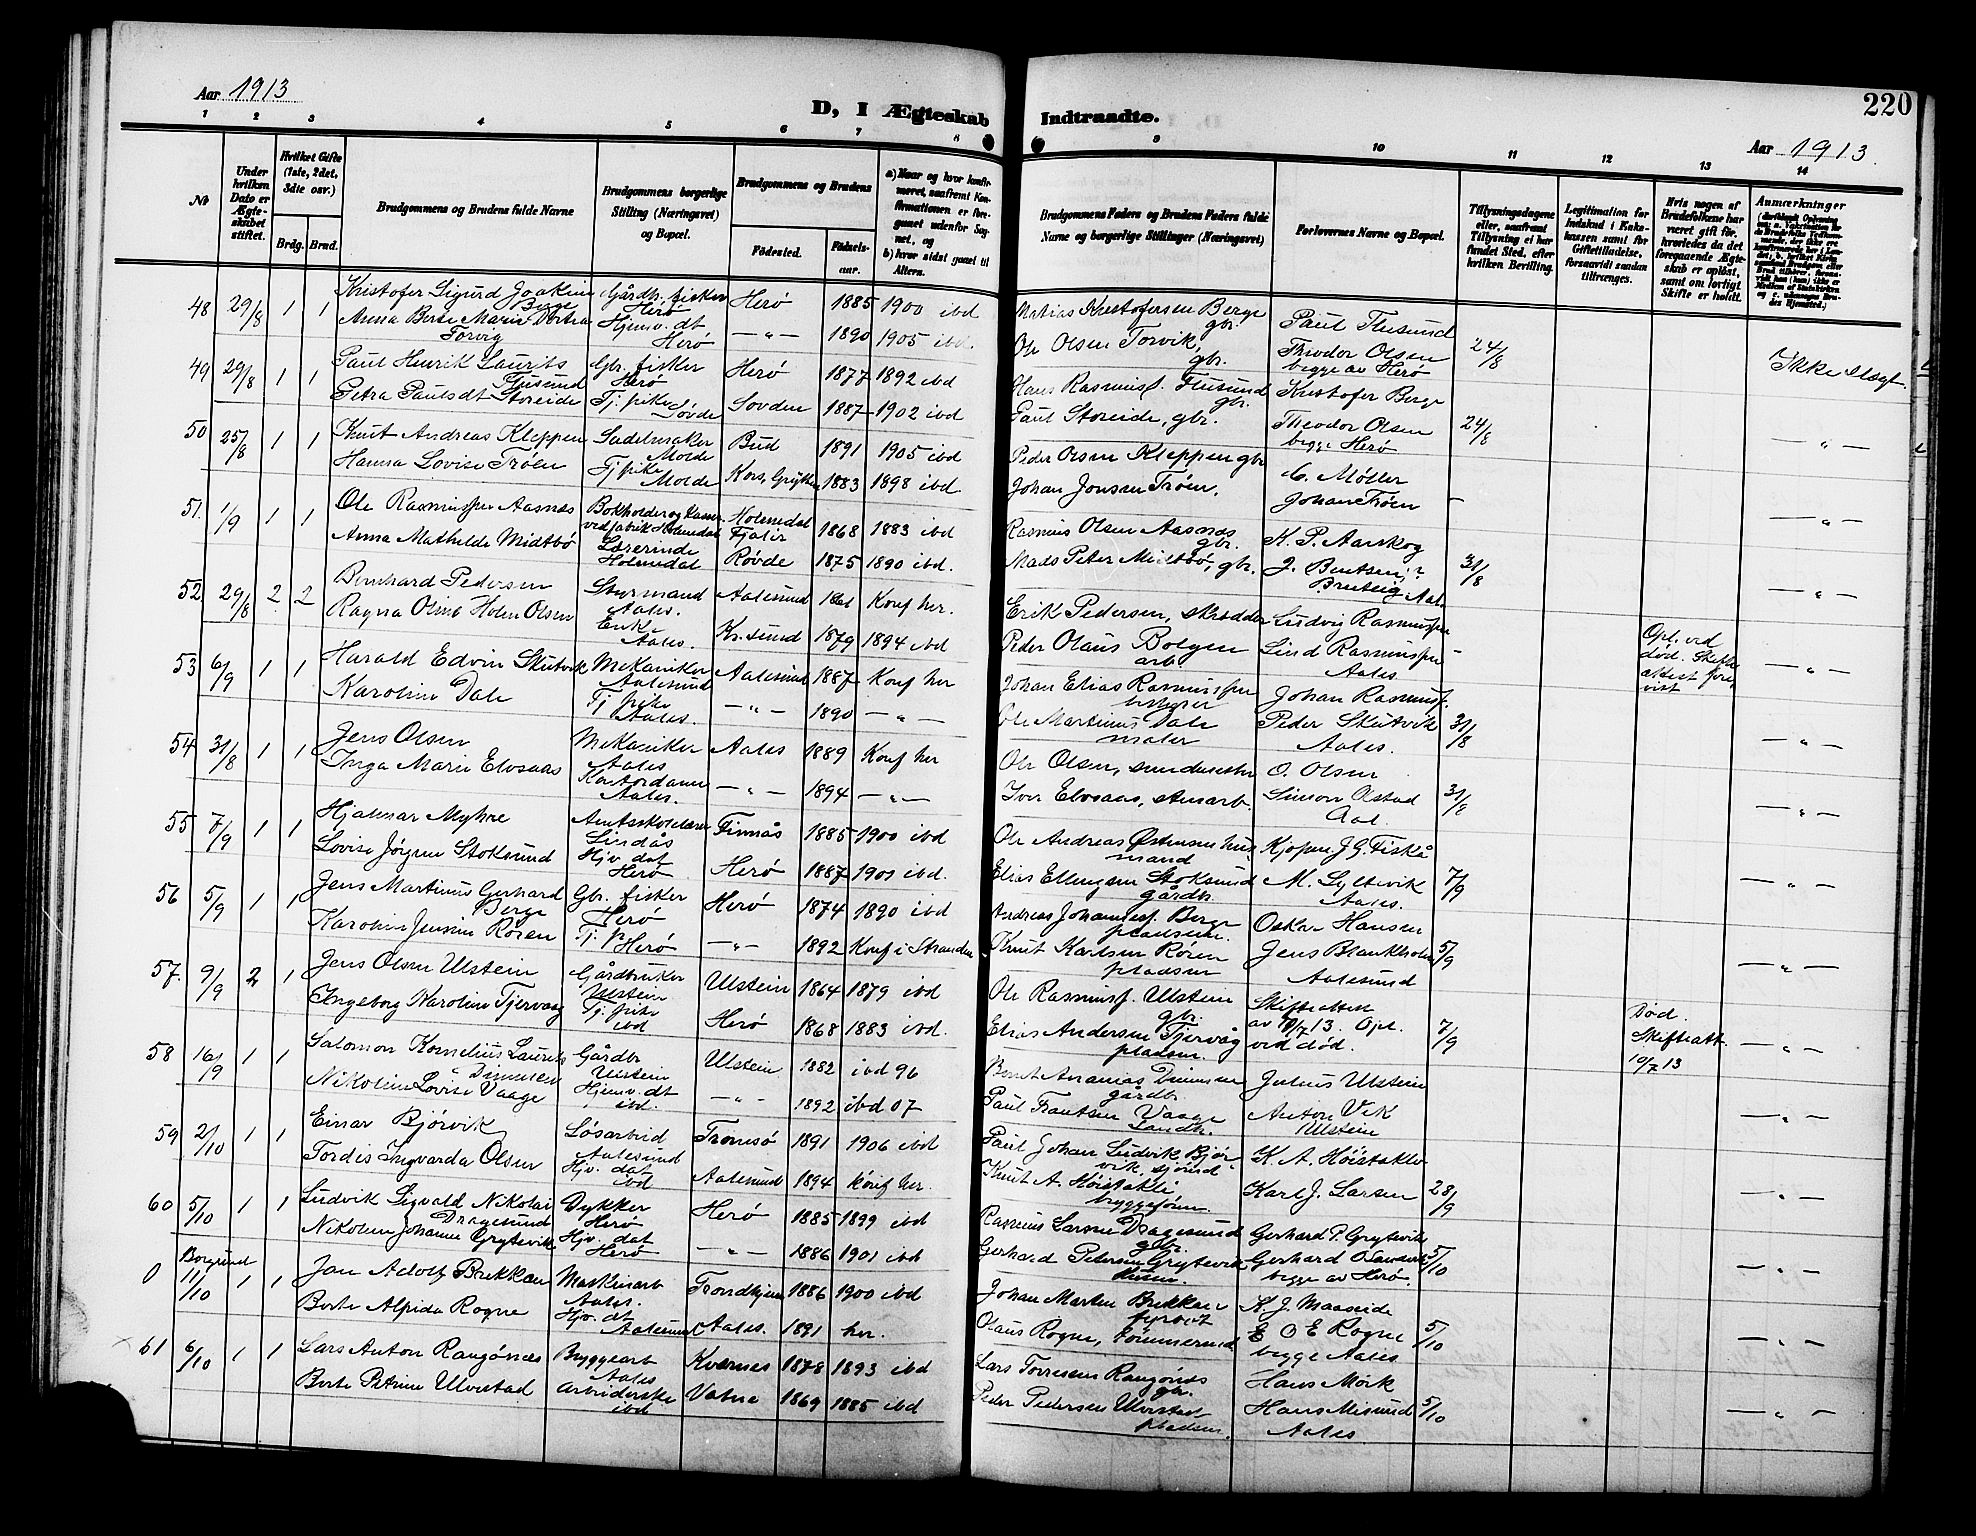 Aar 1913
D, I Ægteskab
Indtraadte.
220
Aar 1913.
1 2 3 4 5 6 7 8
9 10 11 12 13 14
No
Under hvilken Dato er Ægteskabet stiftet.
Hvilket Gifte (1ste, 2det, 3die osv.)
Brdg. Brud.
Brudgommens og Brudens fulde Navne
Brudgommens borgerlige Stilling (Næringsvei) og Bopæl.
Brudgommens og Brudens
Fødested.
Fødselsaar.
a) Naar og hvor konfirmeret, saafremt Konfirmationen er foregaaet udenfor Sognet, og
b) hvor sidst gaaet til Alters.
Brudgommens Faders og Brudens Faders fulde Navne og borgerlige Stillinger (Næringsvei)
Forlovernes Navne og Bopæl.
Tillysningsdagene eller, saafremt Tillysning ei har fundet Sted, efter hvilken Bevilling.
Legitimation for Indskud i Enkekassen samt for Giftetilladelse, forsaavidt saadan tiltrænges.
Hvis nogen af Brudefolkene har været gift før, hvorledes da det foregaaende Ægteskab er opløst, samt om lovligt Skifte er holdt.
Anmærkninger
48 29/8 1 1 Kristofer Sigurd Joakim Berge Gårdbr. fisker Herö Herö 1885 1900 ibd Matias Kristofersen Berge gbr. Paul Flusund
Anna Berte Marie Dortea Torvig Hjemv. dt Herö —"— 1890 1905 ibd. Ole Olsen Torvik, gbr. Theodor Olsen begge av Herö 24/8 Ikke slægt.
49 29/8 1 1 Paul Henrik Laurits Flusund Gbr. fisker Herö Herö 1877 1892 ibd Hans Rasmuss. Flusund gbr. Kristofer Berge
Petra Paulsdt Storeide Tj. pike Sövde Sovden 1887 1902 ibd Paul Storeide, gbr. Theodor Olsen begge Herö 24/8 —"—
50 25/8 1 1 Knut Andreas Kleppen Sadelmaker Molde Bud 1891 1905 ibd Peder Olsen Kleppen gbr C. Møller
Hanna Lovise Trøen Tj pike Molde Kors, Grytten 1883 1898 ibd. Johan Jonsen Trøen. Johan Trøen — —"—
51. 1/9 1 1 Ole Rasmussen Aasnæs Bokholder og kasser. ved fabrik Holmedal Holmedal Fjaler 1868 1883 ibd Rasmus Olsen Aasnæs gbr. K. P. Aarskog
Anna Mathilde Midtbö Lærerinde Holmedal Røvde 1875 1890 ibd. Mads Peter Midtbö, gbr. J. Bentsen, Aal. 31/8 —"—
52 29/8 2 2 Bernhard Pedersen Styrmand Aales. Aalesund Konf her. Erik Pedersen, skrædder Ludvig Rasmussen
Ragna Oline Holm Olsen Enke Aales. Kr.sund 1879 1894 ibd Peder Olaus Bolgen arb. Lind Rasmussen Aales. — Opl. ved död. Skifteattest forevist —"—
53 6/9 1 1 Harald Edvin Skutvik Mekaniker Aalesund Aalesund 1887 Konf her Johan Elias Rasmussen Johan Rasmuss.
Karoline Dale Tj. pike Aales. —"— 1890 —"— Ole Martinus Dale maler Peder Skutvik Aales. 31/8 —"—
54 31/8 1 1 Jens Olsen Mekaniker Aales Aales 1889 Konf her Ole Olsen, O. Olsen
Inga Marie Elvsaas Kontordame Aales. —"— 1894 —"— Iver Elvsaas, stenarb. Simon Olstad Aal. 31/8 —"—
55 7/9 1 1 Hjalmar Myhre Amtsskolelærer Lindås Finnås 1885 1900 ibd Ole Andreas Østensen husmand Kjøpm. J. G. Fiskå
Lovise Jörgine Stoksund Hjv. dat Herö Herö 1887 1901 ibd. Elias Ellingsen Stoksund gårdbr. M. Syltevik Aales. 7/9 —"—
56 5/9 1 1 Jens Martinus Gerhard Berge Gbr. fisker Herö Herö 1874 1890 ibd Andreas Johanness. Berge pladsm. Oskar Hansen
Karoline Jensine Rören Tj. p. Herö —"— 1892 Konf i Stranden Knut Karlsen Rören pladsm Jens Blankholm Aalesund 5/9 —"—
57. 9/9 2 1 Jens Olsen Ulstein Gårdbruker Ulstein Ulstein 1864 1879 ibd Ole Rasmuss. Ulstein gbr. Skifteattest av 10/7 13. Opl. ved död. 7/9 Död. Skifteatt. 10/7 13 —"—
Ingeborg Karoline Tjervaag Tj. pike ibd Herö 1868 1883 ibd. Elias Andersen Tjervåg pladsm.
58 16/9 1 1 Salomon Kornelius Laurits Dimmen Gårdbr Ulstein Ulstein 1882 ibd 96 Bernt Ananias Dimmen gårdb. Julius Ulstein
Nikoline Lovise Vaage Hjemv. dt ibd. —"— 1892 ibd 07 Paul Frantsen Vaage Landh. Anton Vik Ulstein —"—
59 2/10 1 1 Einar Bjørvik Løsarbeid Aalesund Tromsö 1891 1906 ibd Paul Johan Ludvik Bjørvik, sjömd K. A. Höistakli
Tordis Ingvarda Olsen Hjv. dat ibd Aalesund 1894 konf her. Knut A. Höistakli Karl J. Larsen 28/9 —"—
60 5/10 1 1 Ludvik Sigvald Nikolai Dragesund Dykker Herö Herö 1885 1899 ibd Rasmus Larsen Dragesund gbr. Gerhard P. Grytevik
Nikoline Johanne Grytevik Hjv. dat Herö —"— 1886 1901 ibd Gerhard Petersen Grytevik Gerhard begge av Herö. 5/10 —"—
0 Borgund 11/10 1 1 Jan Adolf Brekkan Maskinarb Aales. Trondhjem 1886 1900 ibd Johan Martin Brekkan K. J. Maaseide
Berte Alpida Rogne Hjv. dt Aalesund Aales. 1891 her. Olaus Rogne, tömmermd E O E Rogne begge Aales. 5/10 —"—
61 6/10 1 1 Lars Anton Rangönæs Byggearb Aales Kværnes 1878 1893 ibd Lars Torressen Rangönæs gbr. Hans Mörk
Berte Petrine Ulvestad Arbeiderske ibd Vatne 1869 1885 ibd Peder Pedersen Ulvestad pladsm. Hans Misund Aales 5/10 —"—